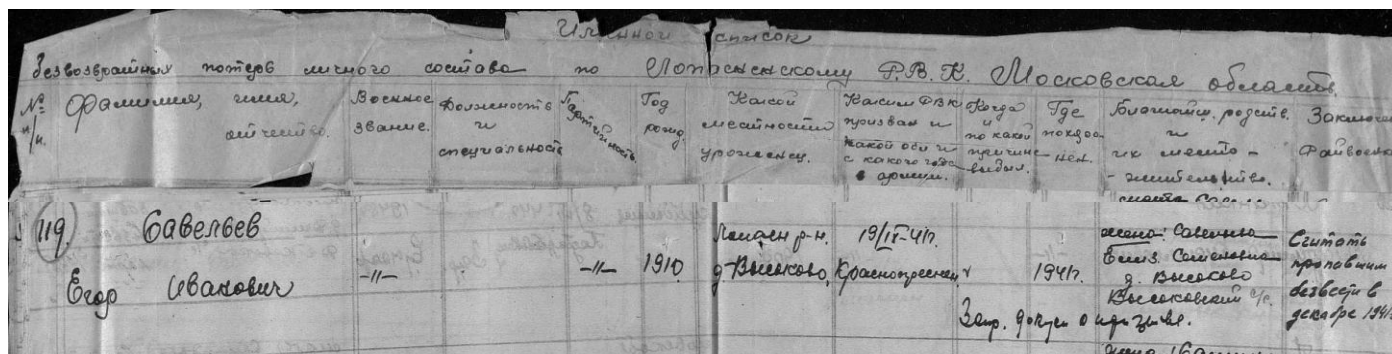 Именной список
безвозвратных потерь личного состава по Лопасненскому Р.В.К. Московская область.
№ п/п. Фамилия, имя, отчество.
Военное звание.
Должность и специальность
Партийность
Год рожд.
Какой местности уроженец.
Каким РВК призван и какой обл и с какого года в армии.
Когда и по какой причине выбыл.
Где похоро-нен.
родств. и их место-жительство.
Заключен Райвоенко
119. Савельев
Егор Иванович
-//-
-//-
1910
Лопасн р-н.
д. Высоково,
19/IX-41г.
Краснопреснен
1941г.
жена: Савельева
Елиз. Семеновна
д. Высоково
Высоковский с/с.
Запр. докум о призыве.
Считать
пропавшим
безвести в
декабре 1941г